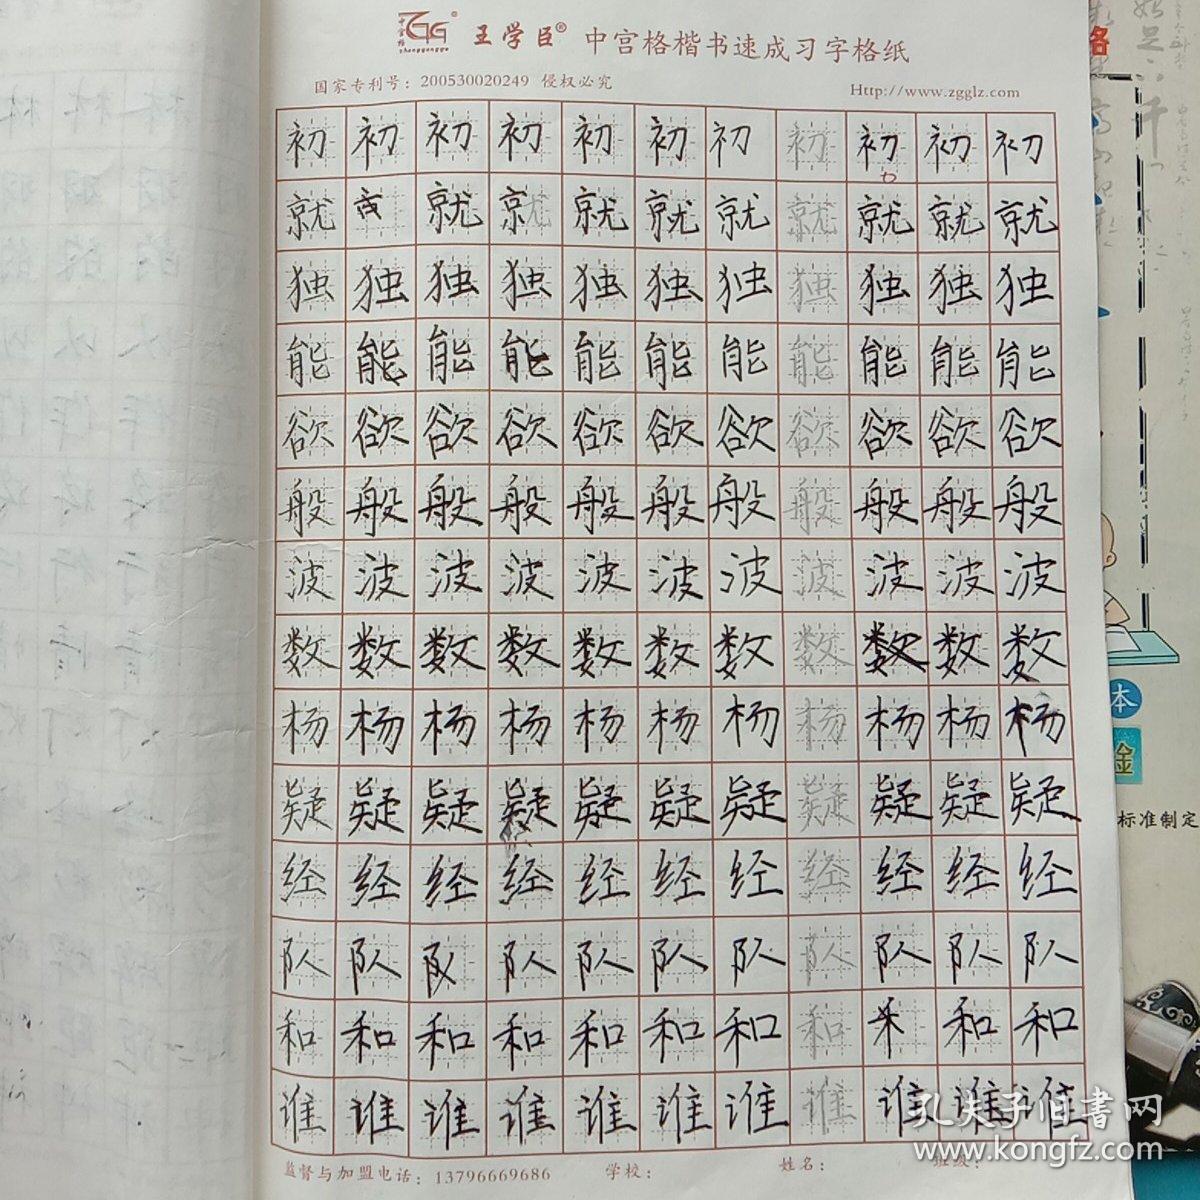 王学臣® 中宫格楷书速成习字格纸
国家专利号：200530020249 侵权必究
Http://www.zgglz.com
初 初 初 初 初 初 初 初 初 初 初
就 就 就 就 就 就 就 就 就 就
独 独 独 独 独 独 独 独 独 独 独
能 能 能 能 能 能 能 能 能 能 能
欲 欲 欲 欲 欲 欲 欲 欲 欲 欲 欲
般 般 般 般 般 般 般 般 般 般 般
波 波 波 波 波 波 波 波 波 波 波
数 数 数 数 数 数 数 数 数 数 数
杨 杨 杨 杨 杨 杨 杨 杨 杨 杨 杨
疑 疑 疑 疑 疑 疑 疑 疑 疑 疑 疑
经 经 经 经 经 经 经 经 经 经 经
队 队 队 队 队 队 队 队 队 队 队
和 和 和 和 和 和 和 和 禾 和 和
谁 谁 谁 谁 谁 谁 谁 谁 谁 谁 谁
监督与加盟电话：13796669686 学校： 姓名： 班级：
格
本
金
标准制定
孔夫子旧书网
www.kongfz.com